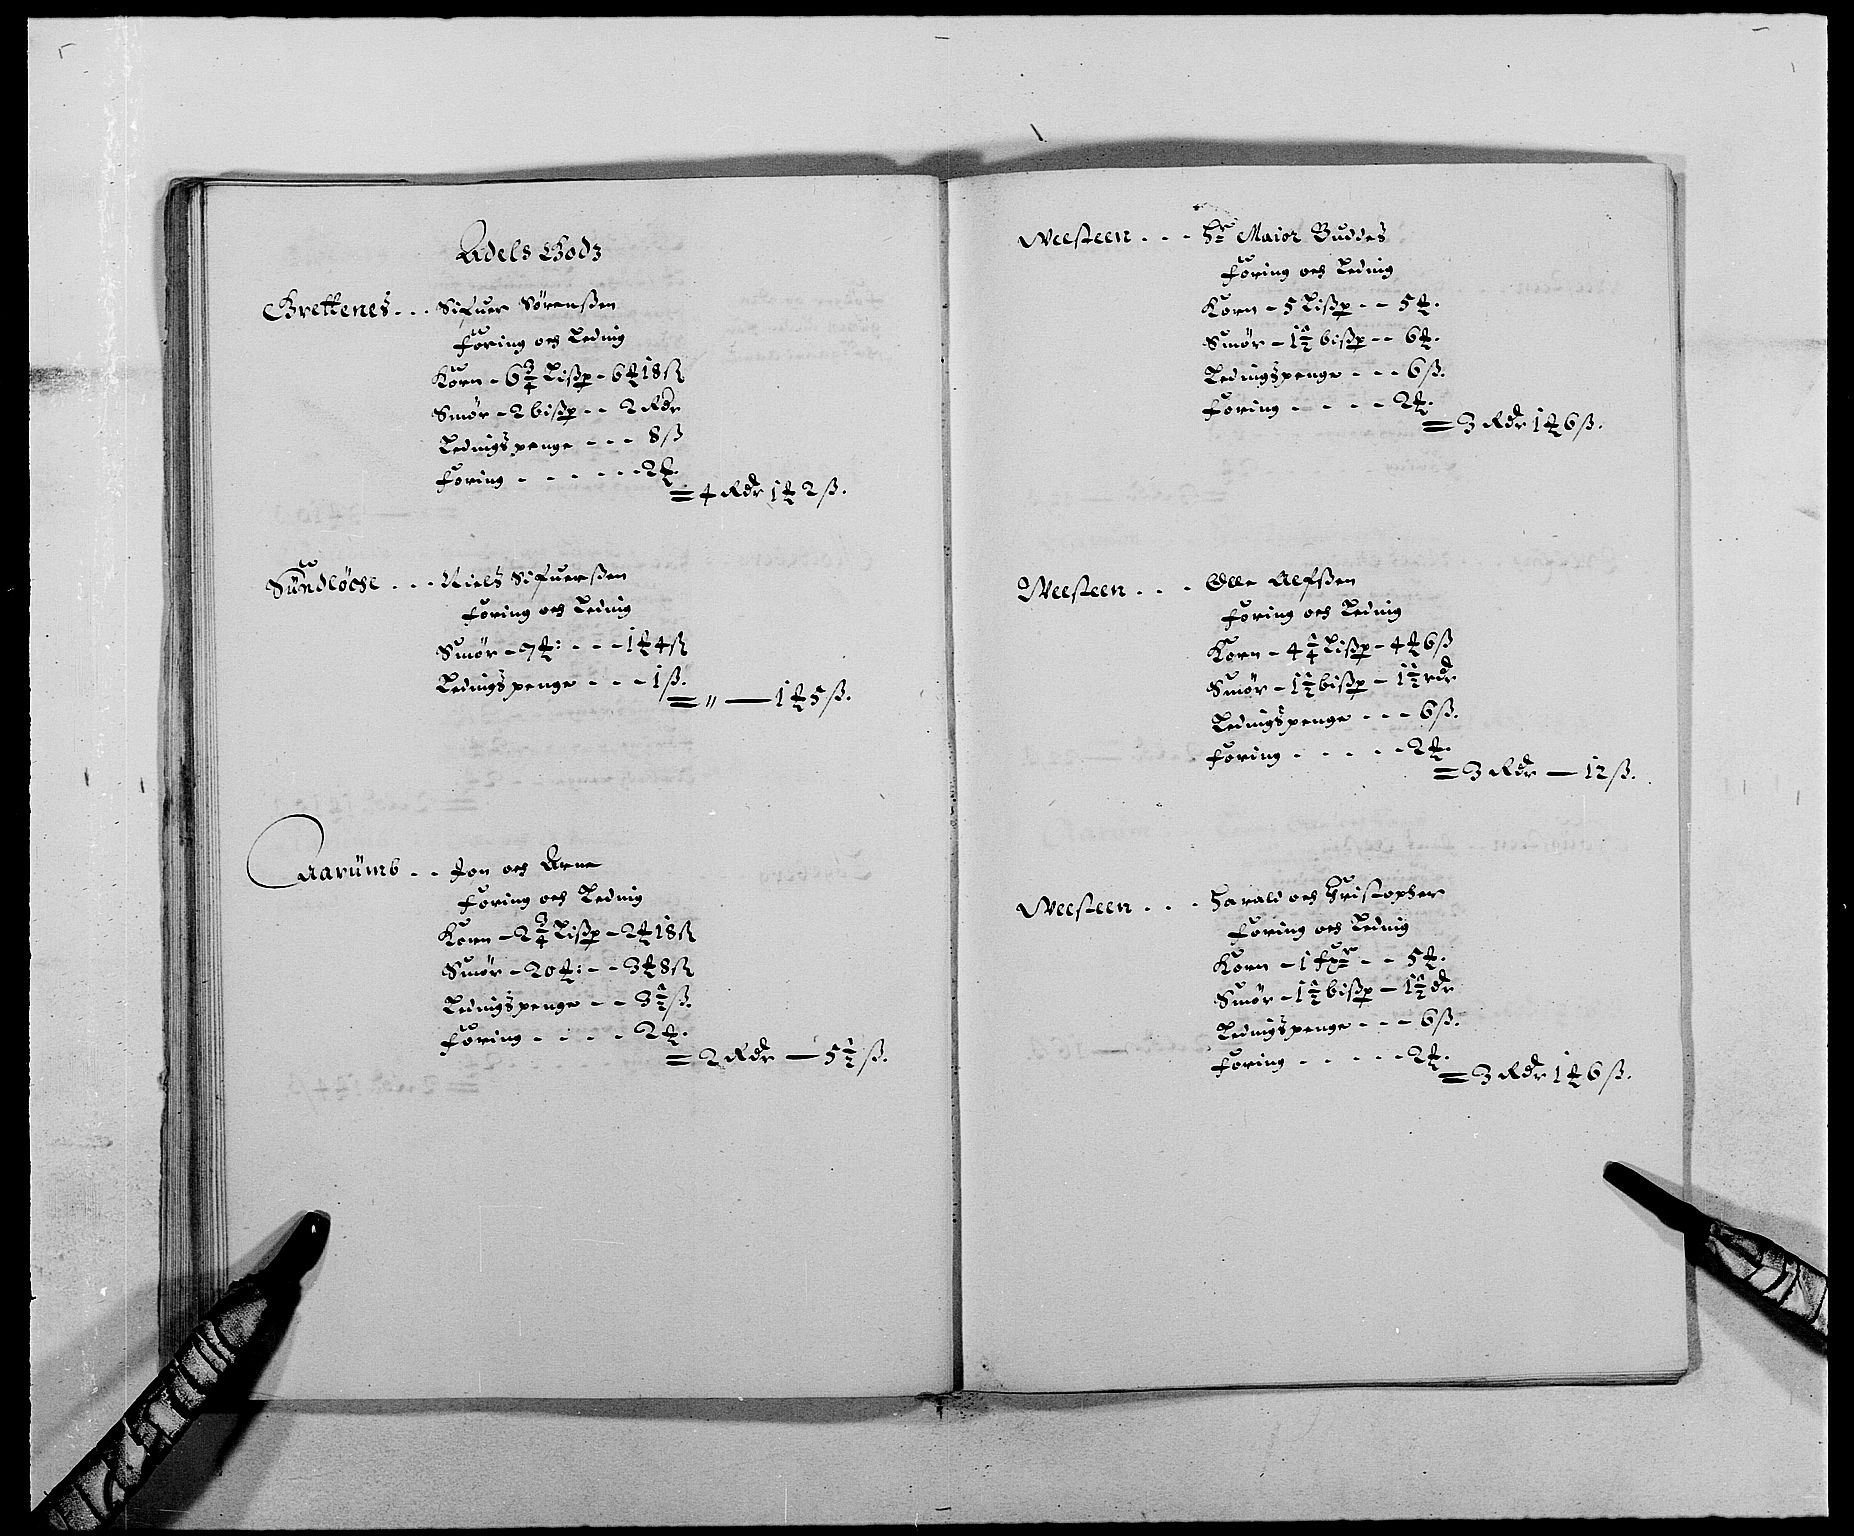 Adels Godz
Grettenes - - - Sifuer Sørenßen
foring och Leding
Korn - 6¾ Lißp - 6 ₰ 18 ß
Smør - 2 bißp - - 2 Rdr
Ledingspenge - - - 8 ß
foring - - - - - - 2 ₰.
= 4 Rdr 1 ₰ 2 ß.
Sündløche - - - Niels Sifuerßen
foring och Leding
Smør - 7 ₰: - - - 1 ₰ 4 ß
Ledingspenge - - - 1 ß.
= " — 1 ₰ 5 ß.
Aarümb - - Jon och Arne
foring och Leding
Korn - 2¾ Lißp - 2 ₰ 18 ß
Smør - 20 ₰: - - 3 ₰ 8 ß
Ledingspenge - - 3½ ß.
foring - - - - - 2 ₰.
= 2 Rdr — 5½ ß.
Weesteen - - - Hr Maior Buddes
foring och Leding
Korn - 5 Lißp - - 5 ₰.
Smør - 1½ bißp - - 6 ₰.
Ledingspenge - - - 6 ß.
foring - - - - - 2 ₰.
= 3 Rdr 1 ₰ 6 ß.
Weesteen - - - Olle Alfßen
foring och Leding
Korn - 4¼ Lißp - 4 ₰ 6 ß
Smør - 1½ bißp - 1½ rdr
Ledingspenge - - - 6 ß.
foring - - - - - 2 ₰.
= 3 Rdr — 12 ß.
Weesteen - - - Harald och Christopher
foring och Leding
Korn - 1 fxr - - 5 ₰.
Smør - 1½ bißp - 1½ dr
Ledingspenge - - - 6 ß.
foring - - - - - 2 ₰.
= 3 Rdr 1 ₰ 6 ß.